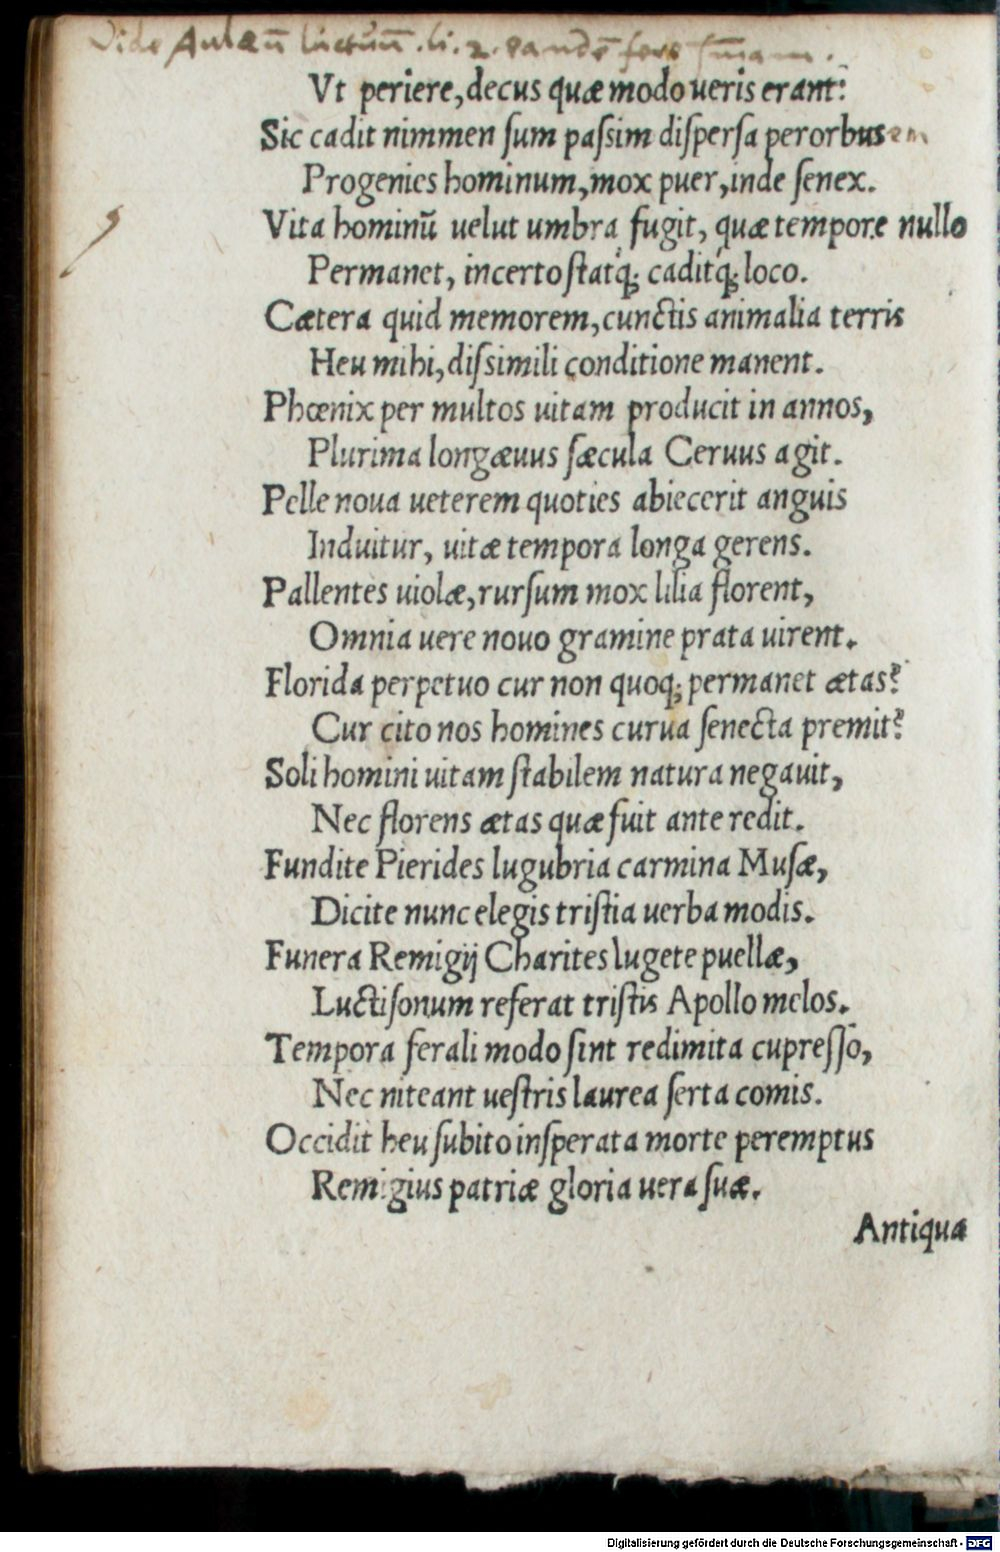 Vide Aulaeū lūctuū. li. 2. eandē fere sn̄iam.
Vt periere, decus quæ modo ueris erant?
Sic cadit nimmen sum paſsim diſperſa perorbusem
Progenies hominum, mox puer, inde ſenex.
Vita hominū uelut umbra fugit, quæ tempore nullo
Permanet, incerto ſtatq́; caditq́; loco.
Cætera quid memorem, cunctis animalia terris
Heu mihi, diſsimili conditione manent.
Phœnix per multos uitam producit in annos,
Plurima longæuus ſæcula Ceruus agit.
Pelle noua ueterem quoties abiecerit anguis
Induitur, uitæ tempora longa gerens.
Pallentes uiolæ, rurſum mox lilia florent,
Omnia uere nouo gramine prata uirent.
Florida perpetuo cur non quoq; permanet ætas?
Cur cito nos homines curua ſenecta premit?
Soli homini uitam ſtabilem natura negauit,
Nec florens ætas quæ fuit ante redit.
Fundite Pierides lugubria carmina Muſæ,
Dicite nunc elegis triſtia uerba modis.
Funera Remigij Charites lugete puellæ,
Luctiſonum referat triſtis Apollo melos.
Tempora ferali modo ſint redimita cupreſſo,
Nec niteant ueſtris laurea ſerta comis.
Occidit heu ſubito inſperata morte peremptus
Remigius patriæ gloria uera ſuæ.
Antiqua
Digitalisierung gefördert durch die Deutsche Forschungsgemeinschaft - DFG